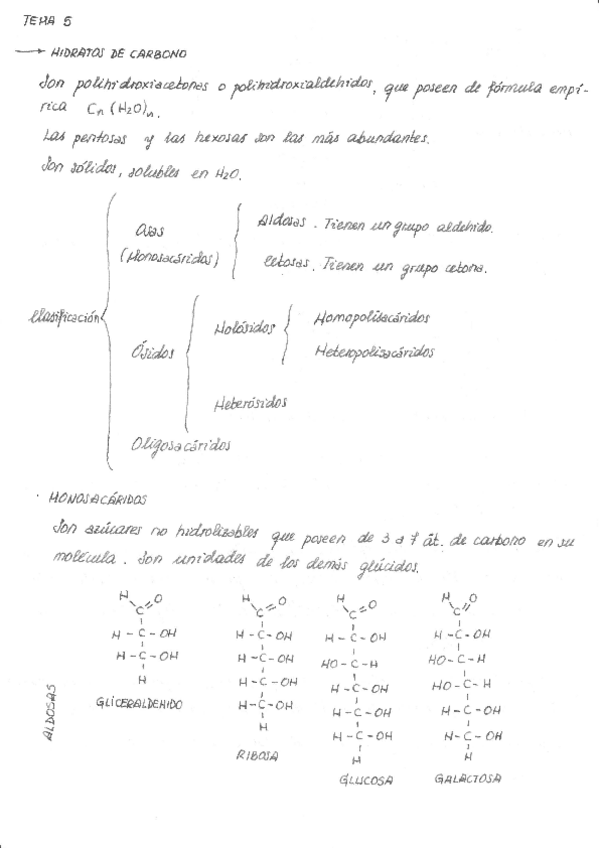 TEMA 5
→ HIDRATOS DE CARBONO
Son polihidroxiacetonas o polihidroxialdehidos, que poseen de fórmula empí-
rica Cn (H2O)n.
Las pentosas y las hexosas son las más abundantes.
Son sólidos, solubles en H2O.
Clasificación
Osas
(Monosacáridos)
Aldosas. Tienen un grupo aldehido.
Cetosas. Tienen un grupo cetona.
Ósidos
Holósidos
Homopolisacáridos
Heteropolisacáridos
Heterósidos
Oligosacáridos
· MONOSACÁRIDOS
Son azúcares no hidrolizables que poseen de 3 a 7 át. de carbono en su
molécula. Son unidades de los demás glúcidos.
ALDOSAS
H O
C
H - C - OH
H - C - OH
H
GLICERALDEHIDO
H O
C
H - C - OH
H - C - OH
H - C - OH
H - C - OH
H
RIBOSA
H O
C
H - C - OH
HO - C - H
H - C - OH
H - C - OH
H - C - OH
H
GLUCOSA
H O
C
H - C - OH
HO - C - H
HO - C - H
H - C - OH
H - C - OH
H
GALACTOSA